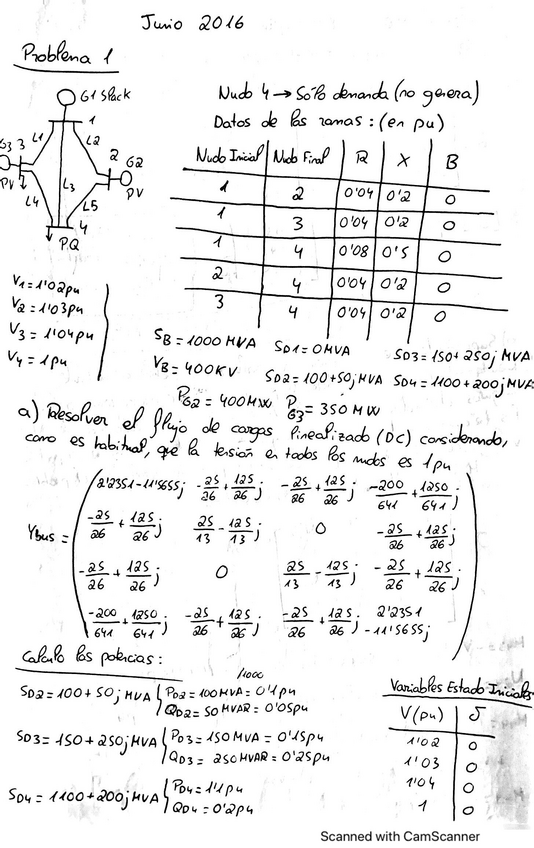 Junio 2016
Problema 1
G1 Slack
1
G3 3
PV
L1
L2
2 G2
PV
L3
L4
L5
4
PQ
Nudo 4 → Sólo demanda (no genera)
Datos de las ramas: (en pu)
Nudo Inicial | Nudo Final | R | X | B
1 | 2 | 0'04 | 0'2 | 0
1 | 3 | 0'04 | 0'2 | 0
1 | 4 | 0'08 | 0'5 | 0
2 | 4 | 0'04 | 0'2 | 0
3 | 4 | 0'04 | 0'2 | 0
V1 = 1'02pu
V2 = 1'03pu
V3 = 1'04pu
V4 = 1pu
SB = 1000 MVA SD1 = 0MVA SD3 = 150 + 250j MVA
VB = 400KV SD2 = 100+50j MVA SD4 = 1100 + 200j MVA
PG2 = 400MW PG3 = 350 MW
a) Resolver el flujo de cargas linealizado (DC) considerando,
como es habitual, que la tensión en todos los nudos es 1pu
Ybus =
2'2351-11'5655j -25/26 + 125/26 j -25/26 + 125/26 j -200/641 + 1250/641 j
-25/26 + 125/26 j 25/13 - 125/13 j 0 -25/26 + 125/26 j
-25/26 + 125/26 j 0 25/13 - 125/13 j -25/26 + 125/26 j
-200/641 + 1250/641 j -25/26 + 125/26 j -25/26 + 125/26 j 2'2351 -11'5655j
Calculo las potencias:
/1000
SD2 = 100 + 50j MVA { PD2 = 100MVA = 0'1pu
QD2 = 50 MVAR = 0'05pu
SD3 = 150 + 250j MVA { PD3 = 150MVA = 0'15pu
QD3 = 250MVAR = 0'25pu
SD4 = 1100 + 200j MVA { PD4 = 1'1pu
QD4 = 0'2pu
Variables Estado Iniciales
V(pu) | δ
1'02 | 0
1'03 | 0
1'04 | 0
1 | 0
Scanned with CamScanner